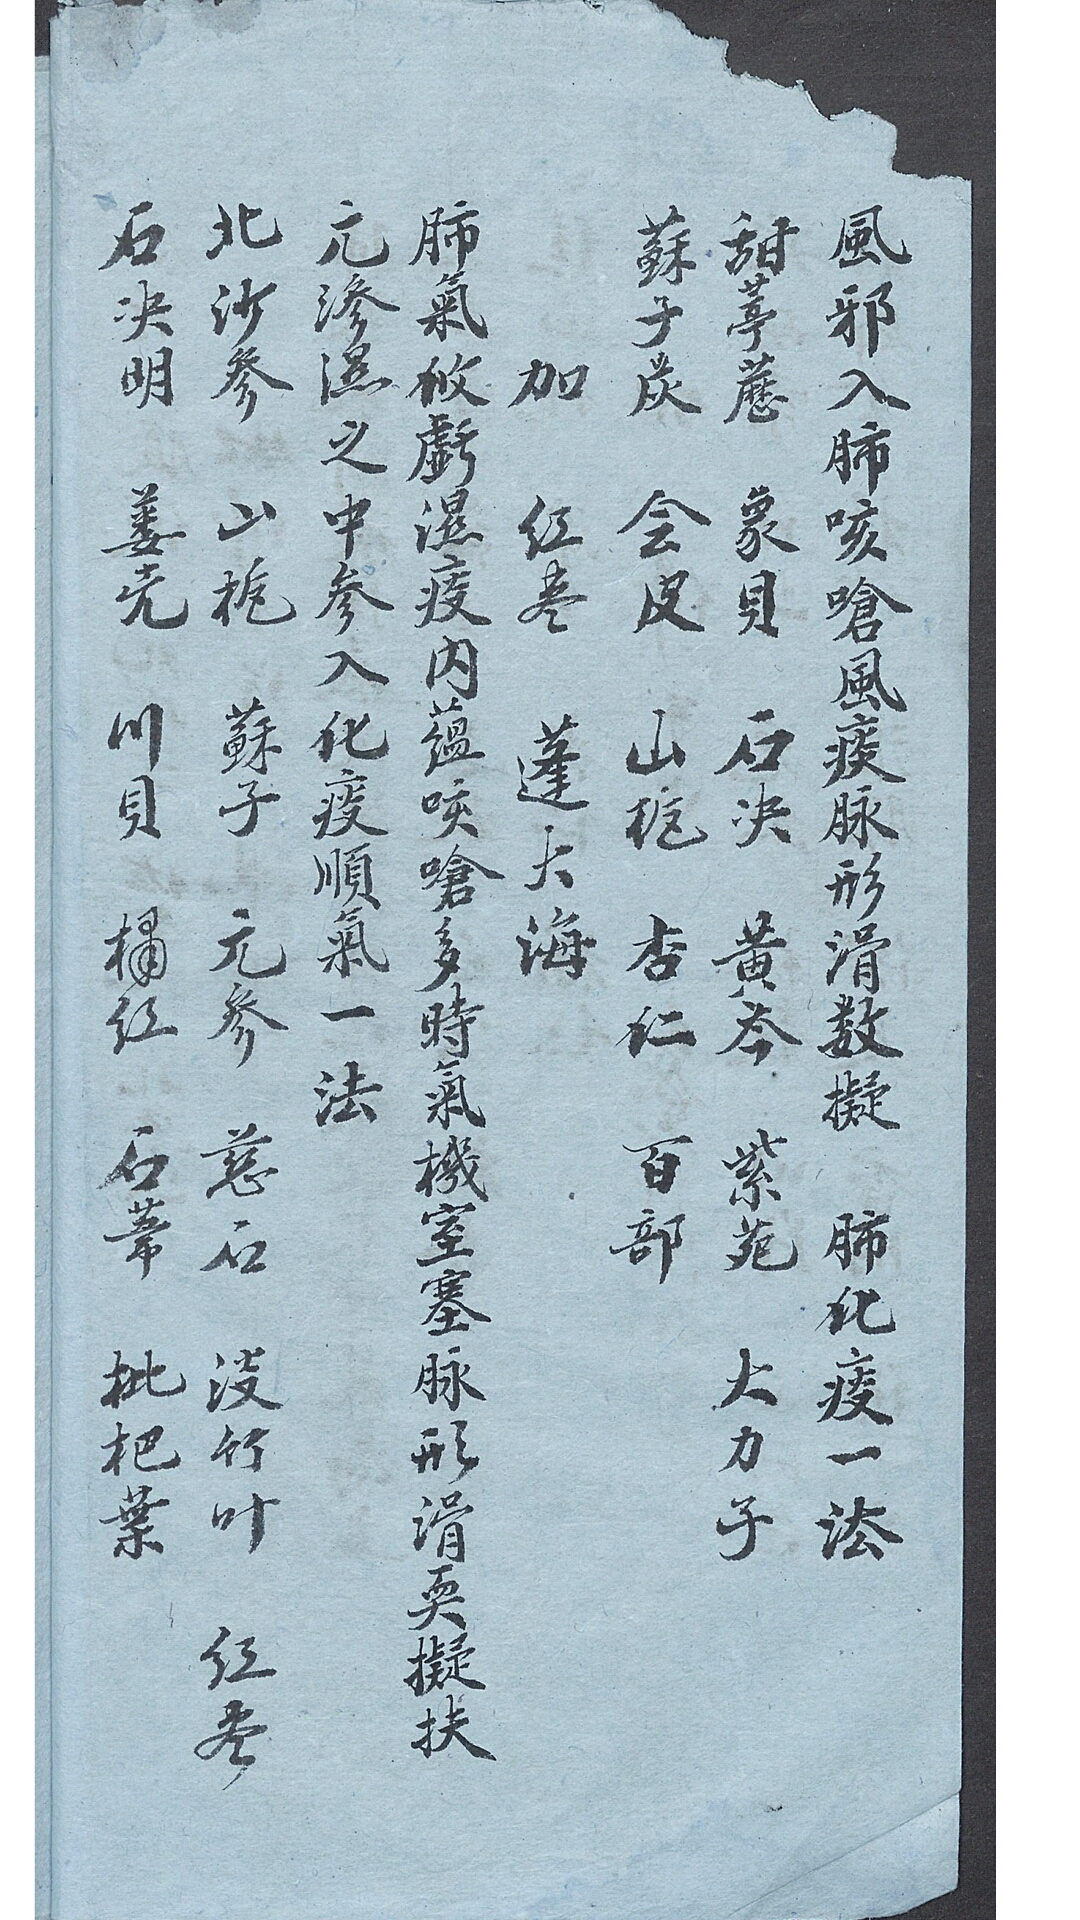 風邪入肺咳嗆風痰脉形滑数擬 肺化痰一法
甜葶藶 象貝 石决 黃芩 紫苑 大力子
蘇子炭 会皮 山梔 杏仁 百部
加 红枣 蓬大海
肺氣攸虧濕痰内蘊咳嗆多時氣機窒塞脉形滑耎擬扶
亢滲濕之中参入化痰順氣一法
北沙參 山梔 蘇子 元參 慈石 淡竹叶 红枣
石决明 蔞壳 川貝 橘红 石葦 枇杷葉